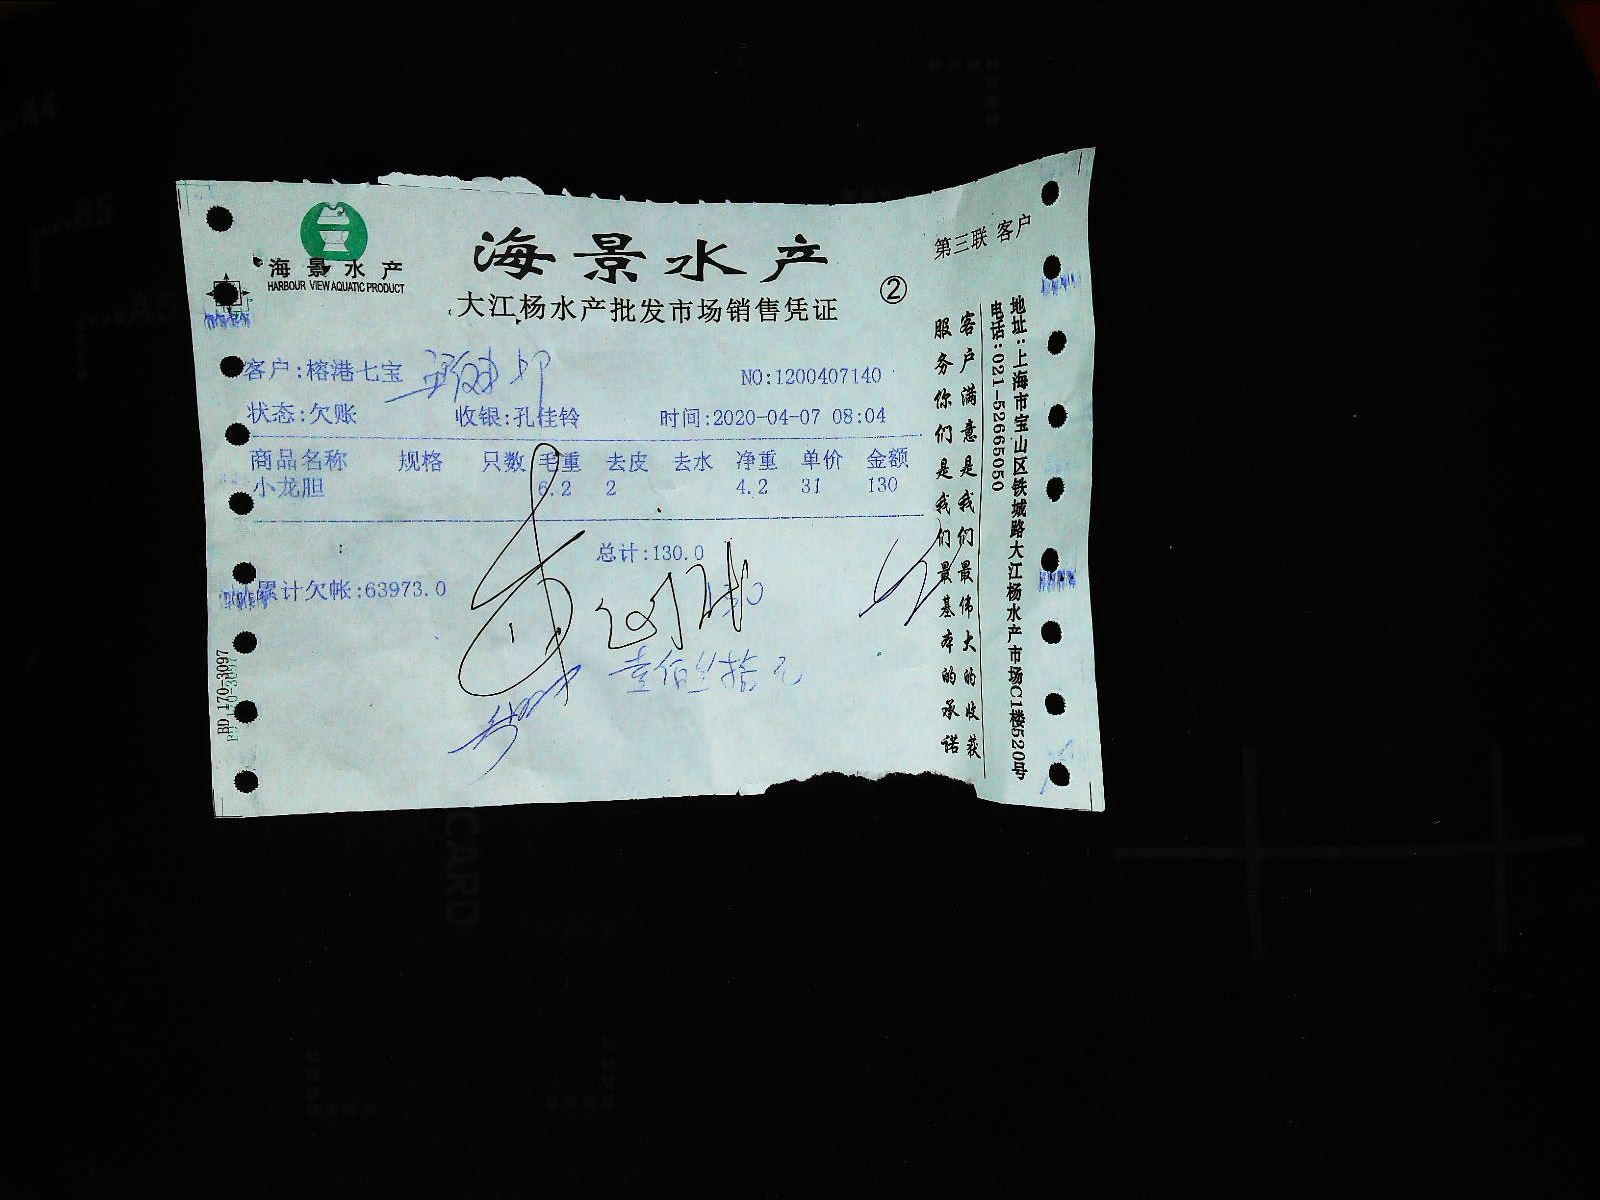 海景水产
HARBOUR VIEW AQUATIC PRODUCT
海景水产
大江杨水产批发市场销售凭证
②
第三联 客户
客户:榕港七宝
NO:1200407140
状态:欠账 收银:孔佳铃 时间:2020-04-07 08:04
商品名称 规格 只数 毛重 去皮 去水 净重 单价 金额
小龙胆 6.2 2 4.2 31 130
总计:130.0
累计欠帐:63973.0
130
壹佰叁拾元
BD 170-3097
客户满意是我们最伟大的收获
服务你们是我们最基本的承诺
地址:上海市宝山区铁城路大江杨水产市场C1楼520号
电话:021-52665050